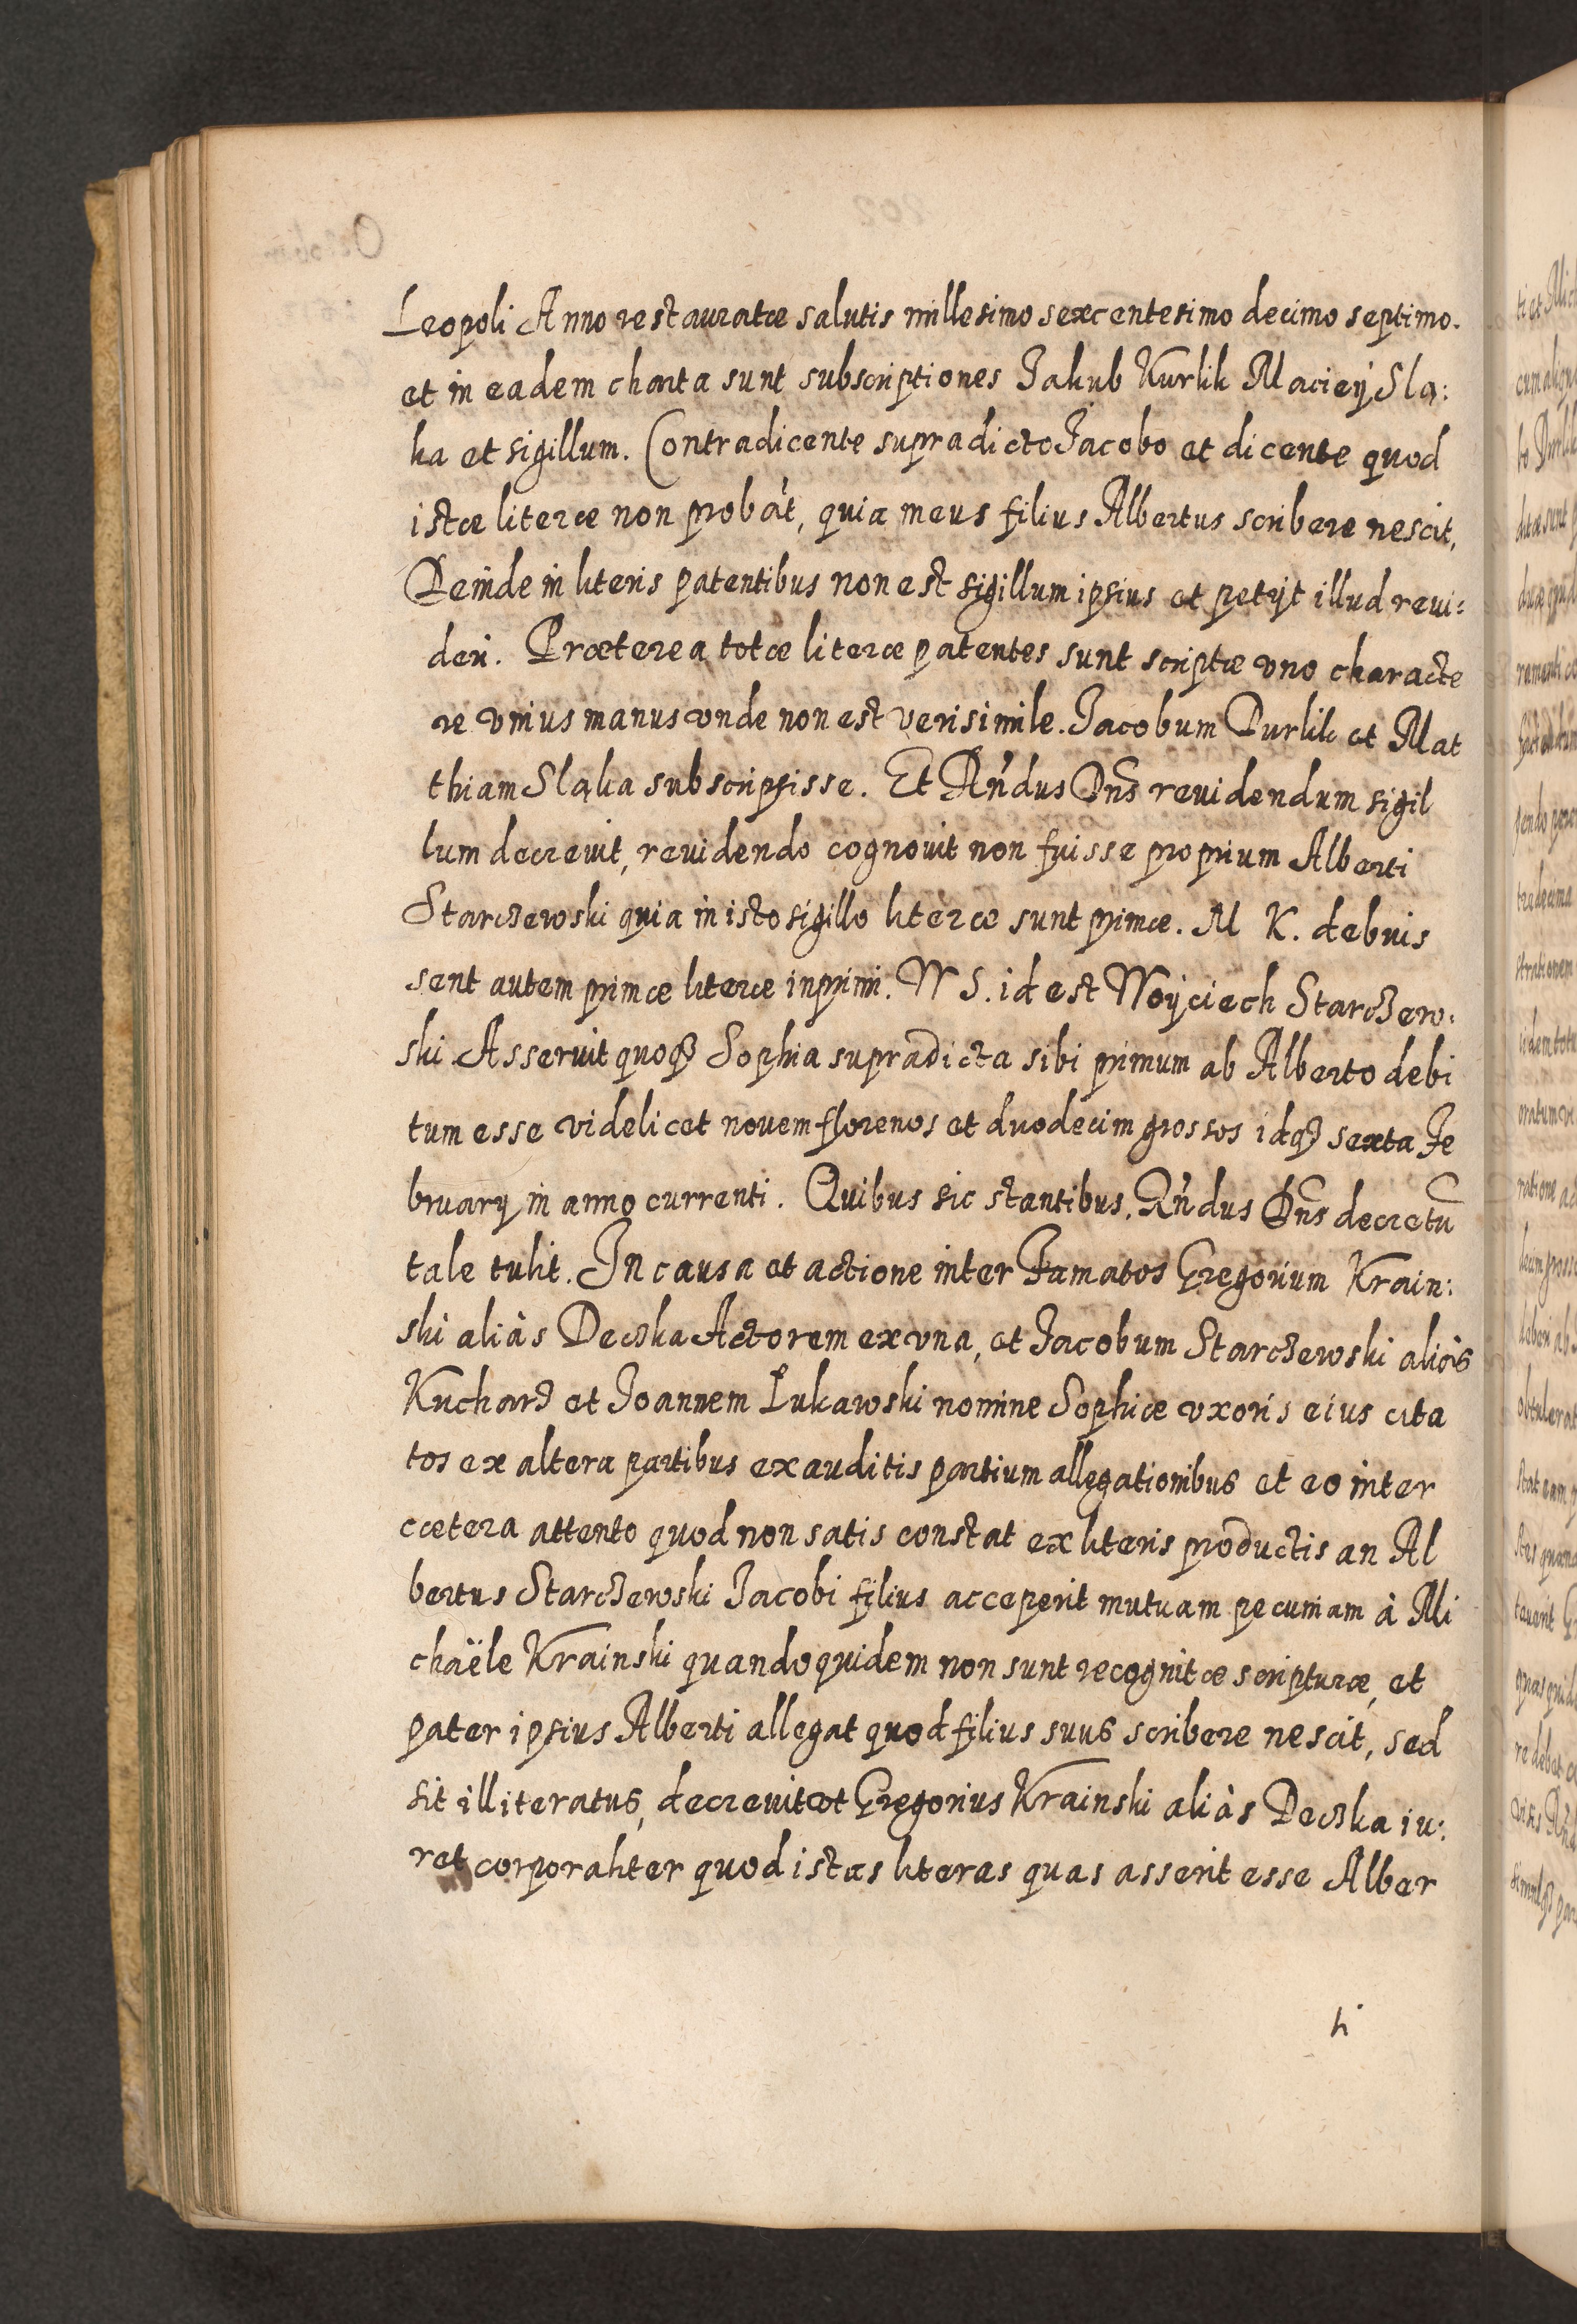 Leopoli Anno restauratæ salutis millesimo sexcentesimo decimo septimo.
et in eadem charta sunt subscriptiones Jakub Kurlik Maciey Sla:
ka et sigillum. Contradicente supradicto Jacobo et dicente quod
istæ literæ non probãt, quia meus filius Albertus scribere nescit,
Deinde in literis patentibus non est sigillum ipsius et petijt illud reui:
deri. Præterea totæ literæ patentes sunt scriptæ vno characte
re vnius manus vnde non est verisimile. Jacobum Durlik et Mat
thiam Slaka subscripsisse. Et Rńdus Dns̃ reuidendum sigil
lum decreuit, reuidendo cognouit non fuisse proprium Alberti
Starczewski quia in isto sigillo literæ sunt primæ. M K. debuis
sent autem primæ literæ inprimi. W S. id est Woyciech Starczew:
ski Asseruit quoqȝ Sophia supradicta sibi primum ab Alberto debi
tum esse videlicet nouem florenos et duodecim grossos idqȝ sexta Fe
bruarij in anno currenti. Quibus sic stantibus. Rńdus Dns̃ decretũ
tale tulit. In causa et actione inter Famatos Gregorium Krain:
ski aliàs Deczka Actorem ex vna, et Jacobum Starczewski aliàs
Kucharz et Joannem Łukawski nomine Sophiæ vxoris eius cita
tos ex altera partibus exauditis partium allegationibus et eo inter
cætera attento quod non satis constat ex literis productis an Al
bertus Starczewski Jacobi filius acceperit mutuam pecuniam à Mi
chaële Krainski quandoquidem non sunt recognitæ scripturæ, et
pater ipsius Alberti allegat quod filius suus scribere nescit, sed
sit illiteratus, decreuit vt Gregorius Krainski aliàs Deczka iu:
ret corporaliter quod istas literas quas asserit esse Alber
ti